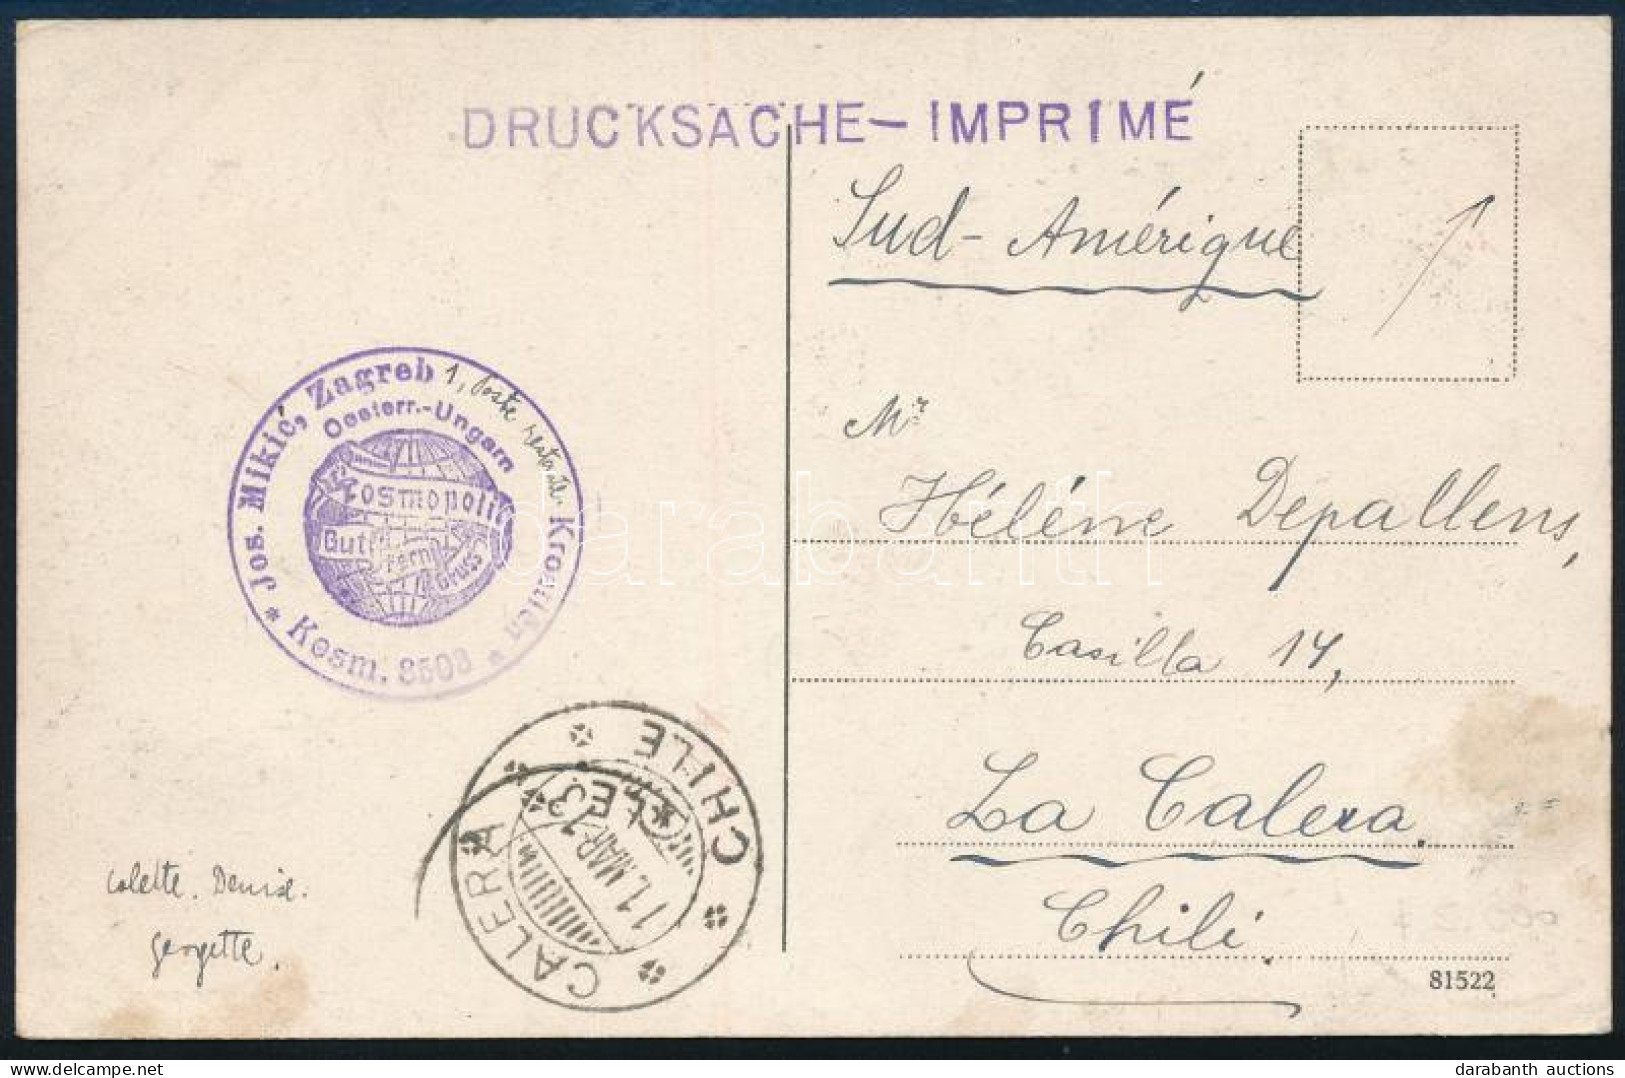 DRUCKSACHE–IMPRIMÉ
Sud-Amérique
Mr
Hélène Depallens,
Casilla 14,
La Calera.
Chili.
81522
* Jos. Mikić, Zagreb 1, Poste restante. Kroatien *
Oesterr.-Ungarn
Kosmopolit
Gut Fern Gruss
Kosm. 8508
CALERA CHILE
11.MAR.13
Colette. Denise.
Georgette.
darabanth
darabanth auctions